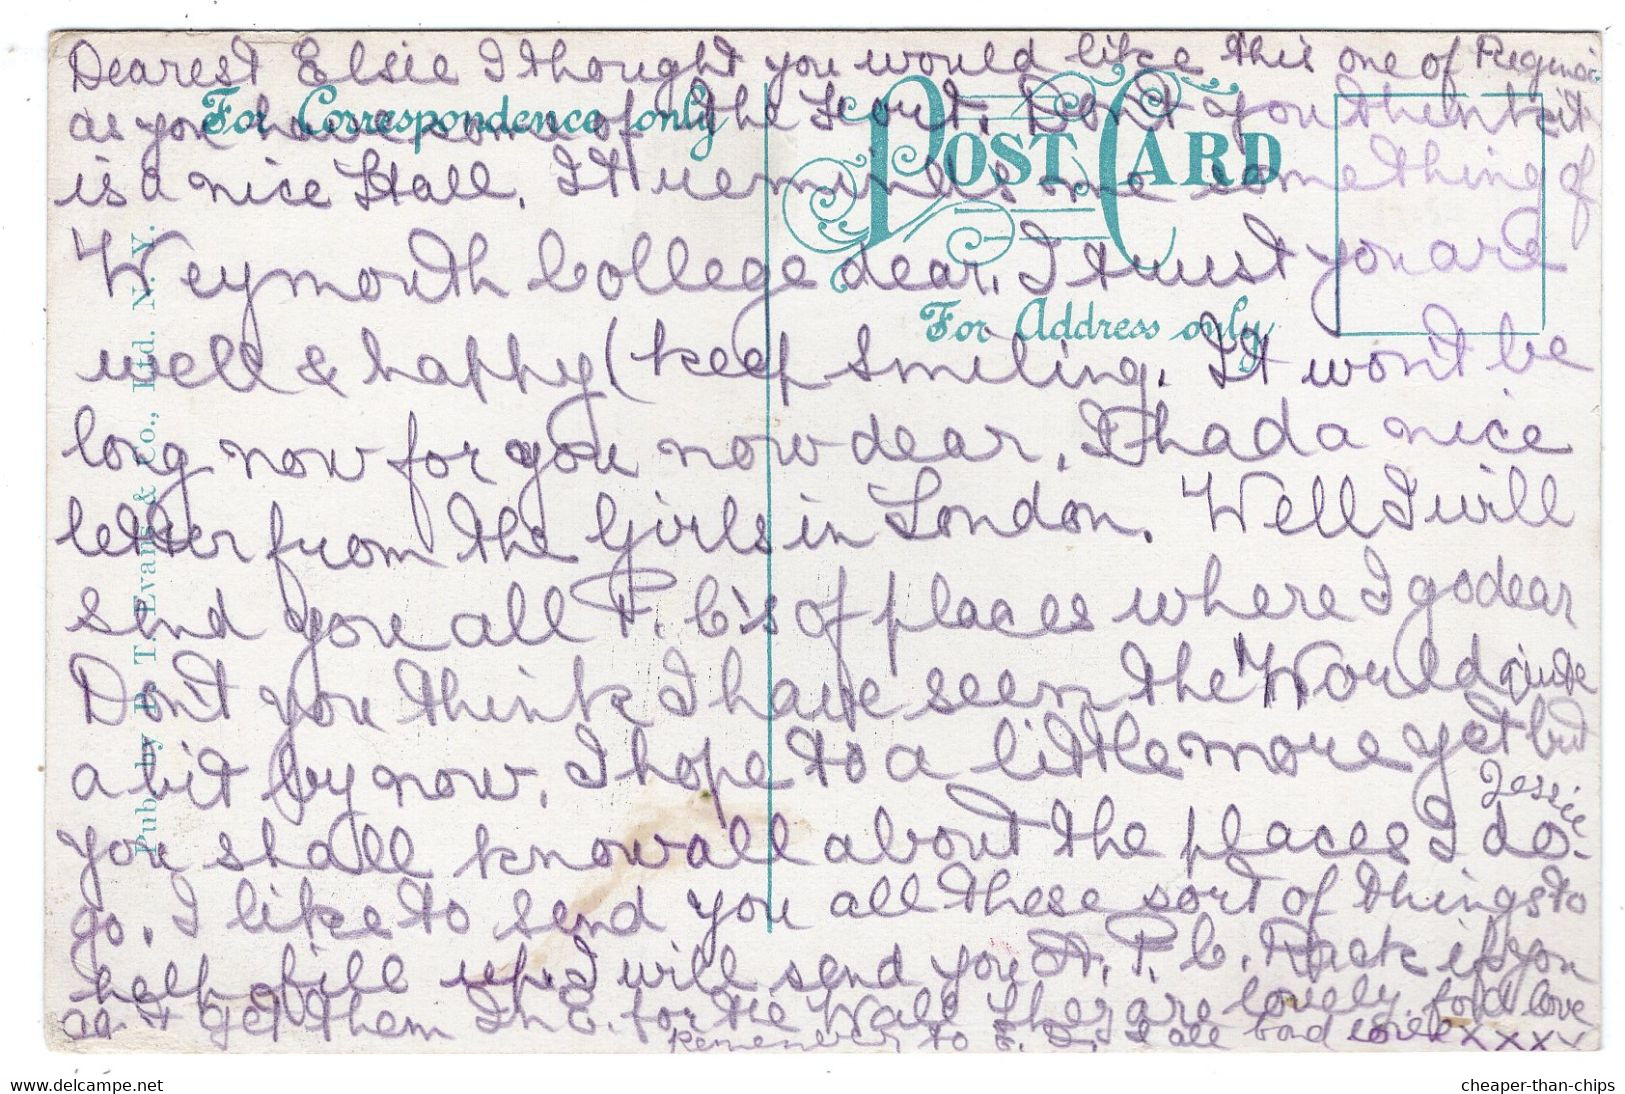 Dearest Elsie I thought you would like this one of Regina
as you have some of the Fort. Don't you think it
For Correspondence only
POST CARD
is a nice Hall, It reminds me something of
Weymouth College dear, I trust you are
For Address only
well & happy (keep smiling, It won't be
long now for you now dear, I had a nice
letter from the Girls in London. Well I will
send you all P. C's of places where I go dear
Don't you think I have seen the World quite
a bit by now, I hope to a little more yet but
you shall know all about the places I do
Jessie
go, I like to send you all these sort of things to
help fill up, I will send you A. P. C. Rack if you
get them In E. for the Wall They are lovely, fond love
Remember to E. & all fond love xxxxx
Pub. by P. T. Evans & Co., Ltd. N. Y.
www.delcampe.net
cheaper-than-chips